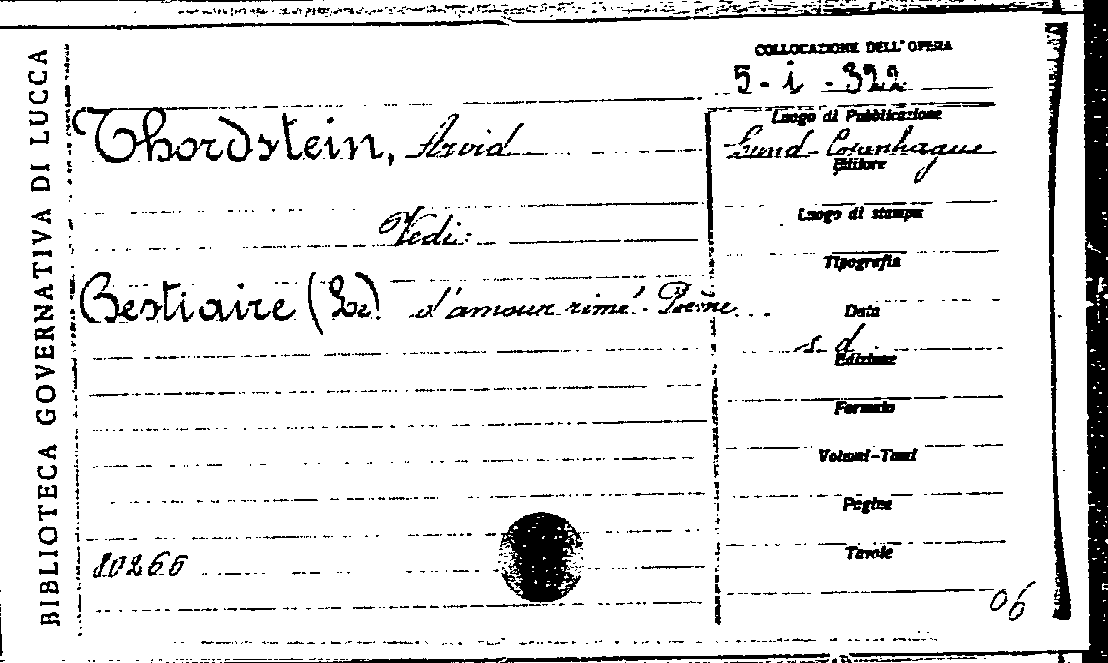 BIBLIOTECA GOVERNATIVA DI LUCCA
COLLOCAZIONE DELL'OPERA
5-i-322
Thordstein, Arvid
Vedi:
Bestiaire (Le) d'amour rimé. Poème
80266
Luogo di Pubblicazione
Lund-Copenhague
Editore
Luogo di stampa
Tipografia
Data
s. d.
Edizione
Formato
Volumi-Tomi
Pagine
Tavole
06